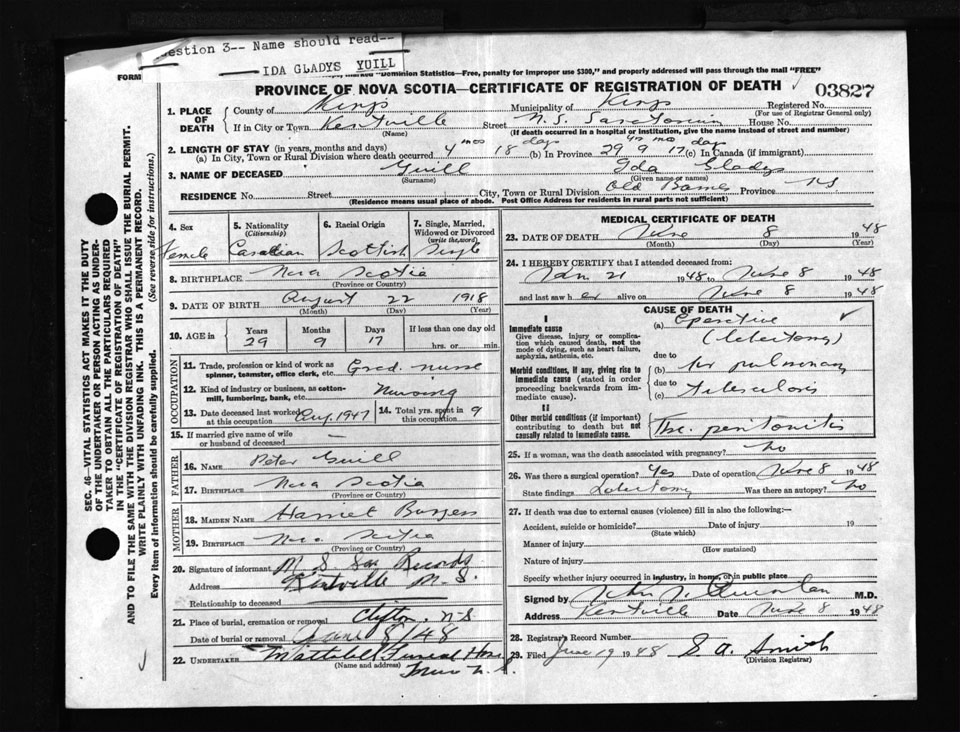 Question 3-- Name should read--
IDA GLADYS YUILL
FORM
marked "Dominion Statistics—Free, penalty for improper use $300," and properly addressed will pass through the mail "FREE"
PROVINCE OF NOVA SCOTIA—CERTIFICATE OF REGISTRATION OF DEATH
03827
1. PLACE OF DEATH
County of Kings
Municipality of Kings
Registered No.
(For use of Registrar General only)
If in City or Town Kentville
(Name)
Street N. S. Sanatorium House No.
(If death occurred in a hospital or institution, give the name instead of street and number)
2. LENGTH OF STAY (in years, months and days)
(a) In City, Town or Rural Division where death occurred 4 mos 18 days (b) In Province 29 yrs 9 mo 17 days (c) In Canada (if immigrant)
3. NAME OF DECEASED Yuill Ida Gladys
(Surname) (Given name or names)
RESIDENCE No. Street City, Town or Rural Division Old Barns Province N S
(Residence means usual place of abode. Post Office Address for residents in rural parts not sufficient)
4. Sex
Female
5. Nationality
(Citizenship)
Canadian
6. Racial Origin
Scottish
7. Single, Married,
Widowed or Divorced
(write the word)
Single
8. BIRTHPLACE Nova Scotia
(Province or Country)
9. DATE OF BIRTH August 22 1918
(Month) (Day) (Year)
10. AGE in
Years Months Days If less than one day old
29 9 17 hrs. or min.
OCCUPATION
11. Trade, profession or kind of work as
spinner, teamster, office clerk, etc. Grad. nurse
12. Kind of industry or business, as cotton-
mill, lumbering, bank, etc. Nursing
13. Date deceased last worked
at this occupation Aug. 1947
14. Total yrs. spent in
this occupation 9
15. If married give name of wife
or husband of deceased —
FATHER
16. NAME Peter Yuill
17. BIRTHPLACE Nova Scotia
(Province or Country)
MOTHER
18. MAIDEN NAME Harriet Burgess
19. BIRTHPLACE Nova Scotia
(Province or Country)
20. Signature of informant N. S. San Records
Address Kentville N. S.
Relationship to deceased
21. Place of burial, cremation or removal Clifton, N-S
Date of burial or removal June 8/48
22. UNDERTAKER Mattatall Funeral Home
(Name and address)
Truro N. S.
MEDICAL CERTIFICATE OF DEATH
23. DATE OF DEATH June 8 1948
(Month) (Day) (Year)
24. I HEREBY CERTIFY that I attended deceased from:
Jan 21 1948 to June 8 1948
and last saw her alive on June 8 1948
CAUSE OF DEATH
I
Immediate cause
Give disease, injury or complica-
tion which caused death, not the
mode of dying, such as heart failure,
asphyxia, asthenia, etc.
(a) Operative
(lobectomy)
due to
Morbid conditions, if any, giving rise to
immediate cause (stated in order
proceeding backwards from im-
mediate cause).
(b) for pulmonary
due to
(c) tuberculosis
II
Other morbid conditions (if important)
contributing to death but not
causally related to immediate cause.
Tbc. peritonitis
25. If a woman, was the death associated with pregnancy? No
26. Was there a surgical operation? Yes Date of operation June 8 1948
State findings Lobectomy Was there an autopsy? No
27. If death was due to external causes (violence) fill in also the following:—
Accident, suicide or homicide? Date of injury 19
(State which)
Manner of injury
(How sustained)
Nature of injury
Specify whether injury occurred in industry, in home, or in public place
Signed by M.D.
Address Kentville Date June 8 1948
28. Registrar's Record Number
29. Filed June 19 1948 S A. Smith
(Division Registrar)
SEC. 46—VITAL STATISTICS ACT MAKES IT THE DUTY
OF THE UNDERTAKER OR PERSON ACTING AS UNDER-
TAKER TO OBTAIN ALL THE PARTICULARS REQUIRED
IN THE "CERTIFICATE OF REGISTRATION OF DEATH"
AND TO FILE THE SAME WITH THE DIVISION REGISTRAR WHO SHALL ISSUE THE BURIAL PERMIT.
WRITE PLAINLY WITH UNFADING INK. THIS IS A PERMANENT RECORD.
Every item of information should be carefully supplied. (See reverse side for instructions.)